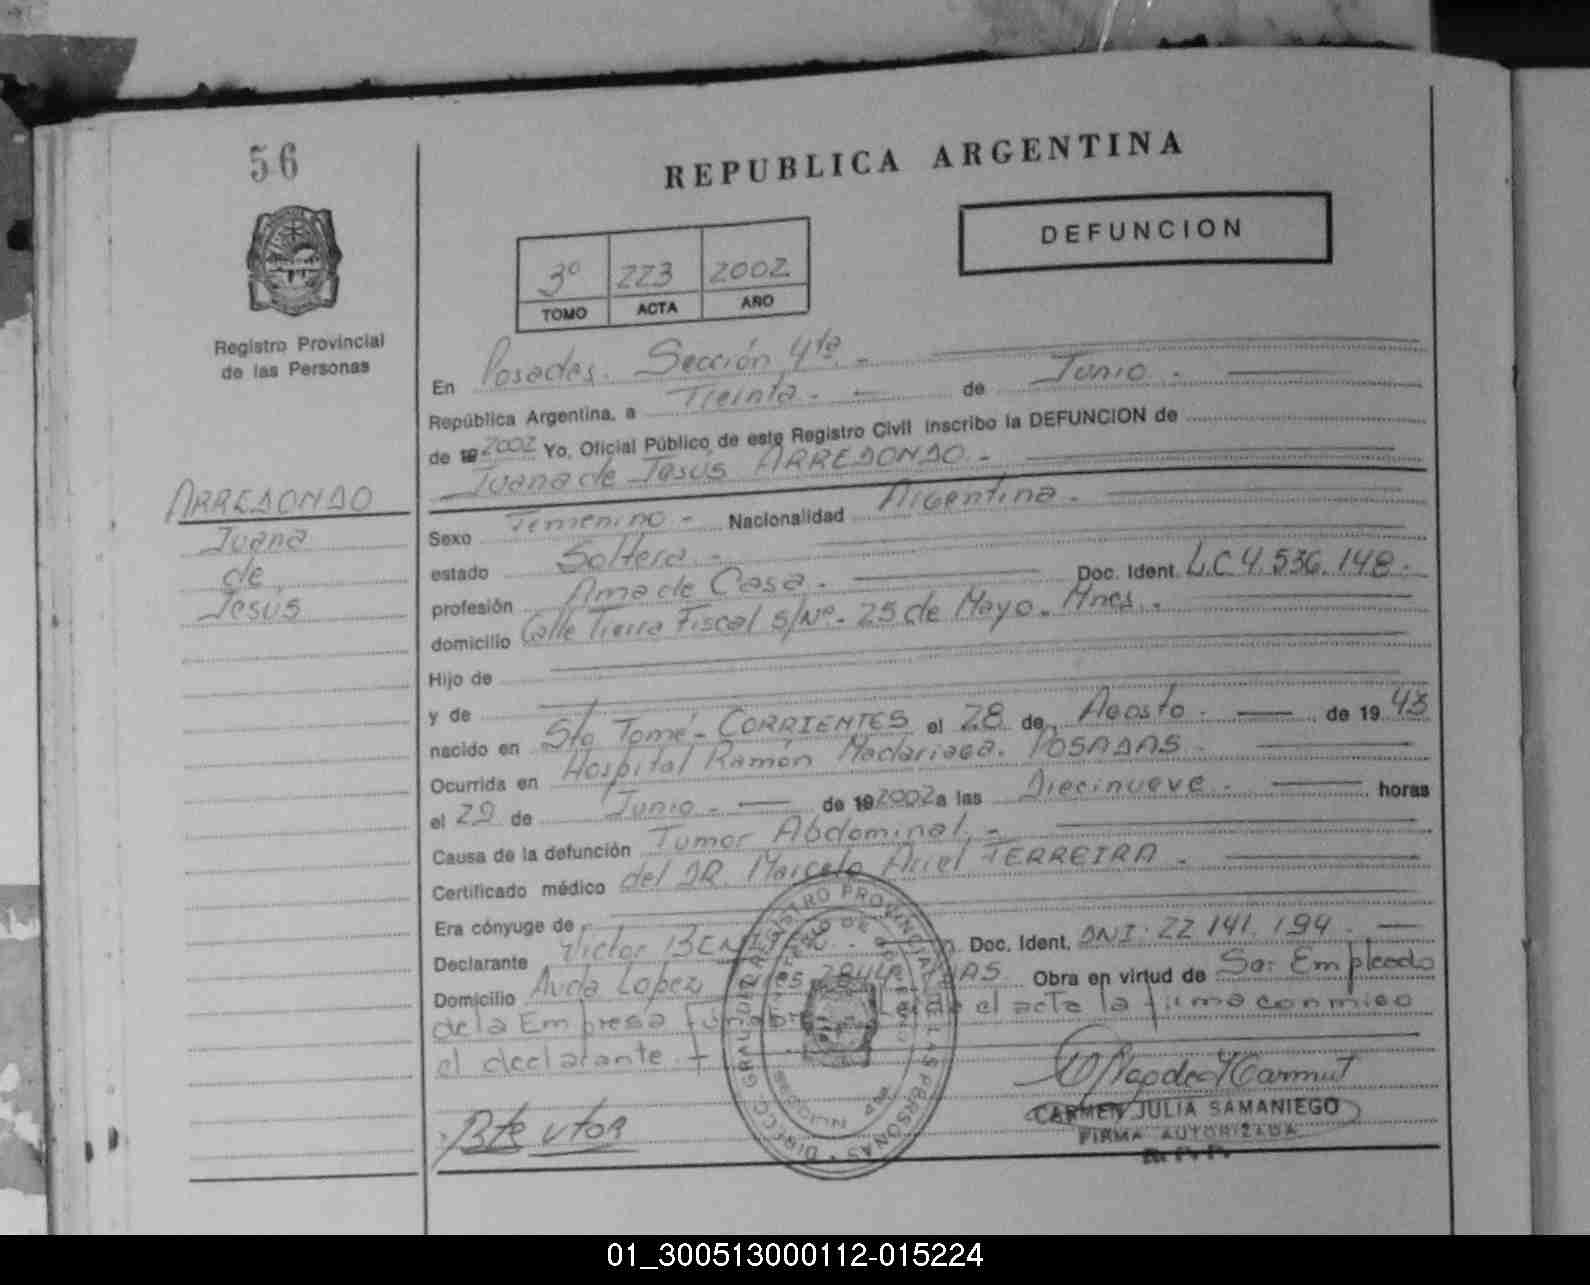 56
REPUBLICA ARGENTINA
DEFUNCION
3º 223 2002
TOMO ACTA AÑO
Registro Provincial
de las Personas
En Posadas. Sección 4ta. -
República Argentina, a Treinta. - de Junio. -
de 19 2002 Yo, Oficial Público de este Registro Civil inscribo la DEFUNCION de
Juana de Jesús ARREDONDO. -
ARREDONDO
Juana
de
Jesús
Sexo Femenino - Nacionalidad Argentina. -
estado Soltera. -
profesión Ama de Casa. - Doc. Ident. L.C 4.536.148.
domicilio Calle Tierra Fiscal s/Nº. 25 de Mayo. Mnes. -
Hijo de
y de
nacido en Sto Tomé - CORRIENTES el 28 de Agosto. - de 19 43
Ocurrida en Hospital Ramón Madariaga. POSADAS. -
el 29 de Junio. - de 19 2002 a las Diecinueve. - horas
Causa de la defunción Tumor Abdominal. -
Certificado médico del DR. Marcelo Ariel FERREIRA. -
Era cónyuge de
Declarante Victor BENITEZ. - Doc. Ident. DNI. 22.141.194. -
Domicilio Avda Lopez Obra en virtud de Ser Empleado
de la Empresa Leída el acta la firma conmigo
el declarante.
DIRECC. GRAL. DEL REGISTRO PROVINCIAL DE LAS PERSONAS
CARMEN JULIA SAMANIEGO
FIRMA AUTORIZADA
R. P. P.
01_300513000112-015224